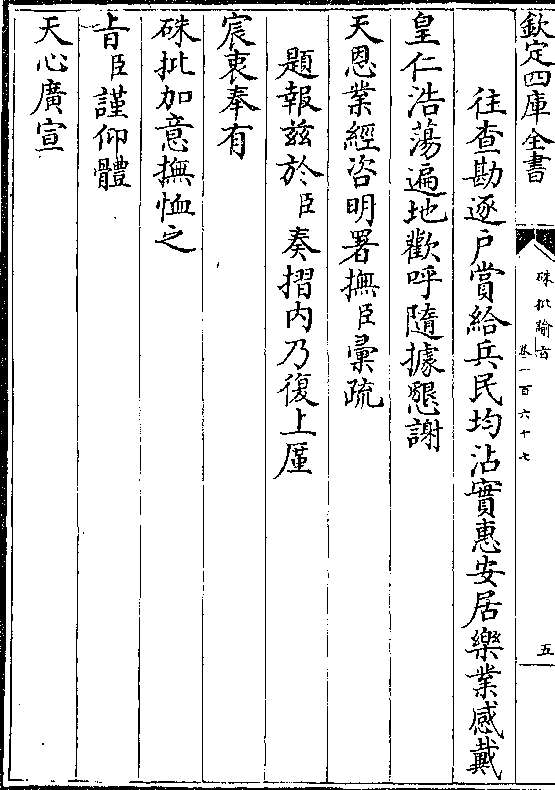 欽定四庫全書
硃批諭旨
卷一百六十七
五
往查勘逐户賞給兵民均沾實惠安居樂業感戴
皇仁浩蕩遍地歡呼隨據懇謝
天恩業經咨明署撫臣彚疏
題報兹於臣奏摺内乃復上厪
宸衷奉有
硃批加意撫恤之
㫖臣謹仰體
天心廣宣